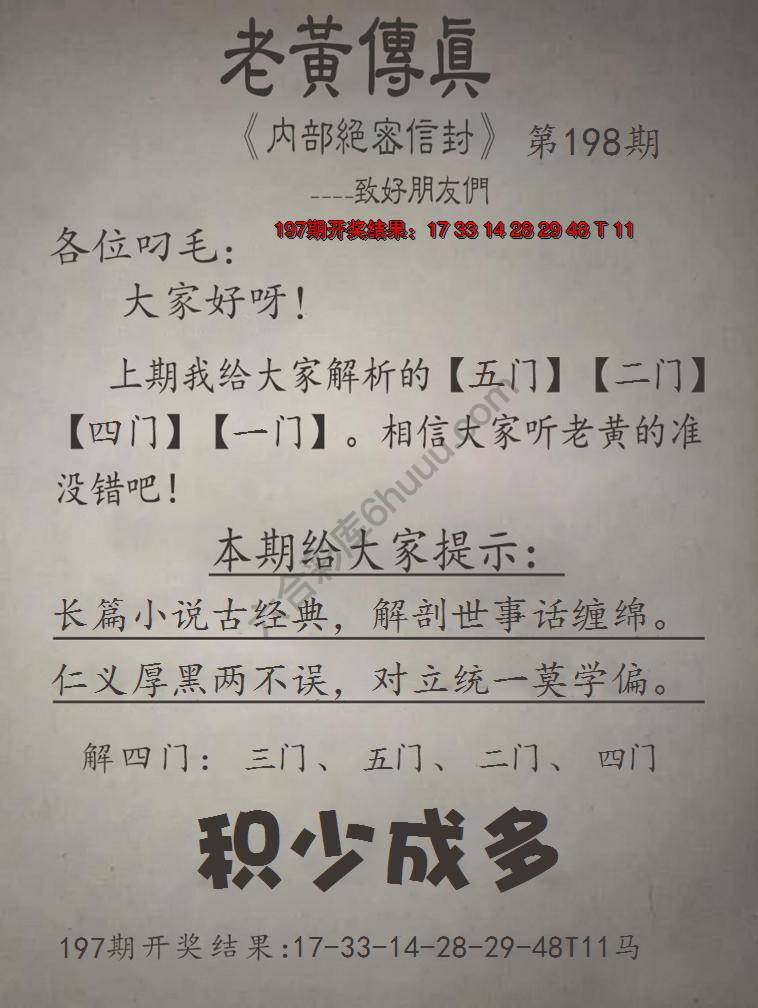 老黃傳眞
《内部絕密信封》 第198期
----致好朋友們
197期开奖结果：17 33 14 28 29 48 T 11
各位叼毛：
大家好呀！
上期我给大家解析的【五门】【二门】
【四门】【一门】。相信大家听老黄的准
没错吧！
六合彩库6huuu.com
本期给大家提示：
长篇小说古经典，解剖世事话缠绵。
仁义厚黑两不误，对立统一莫学偏。
解四门：三门、五门、二门、四门
积少成多
197期开奖结果:17-33-14-28-29-48T11马